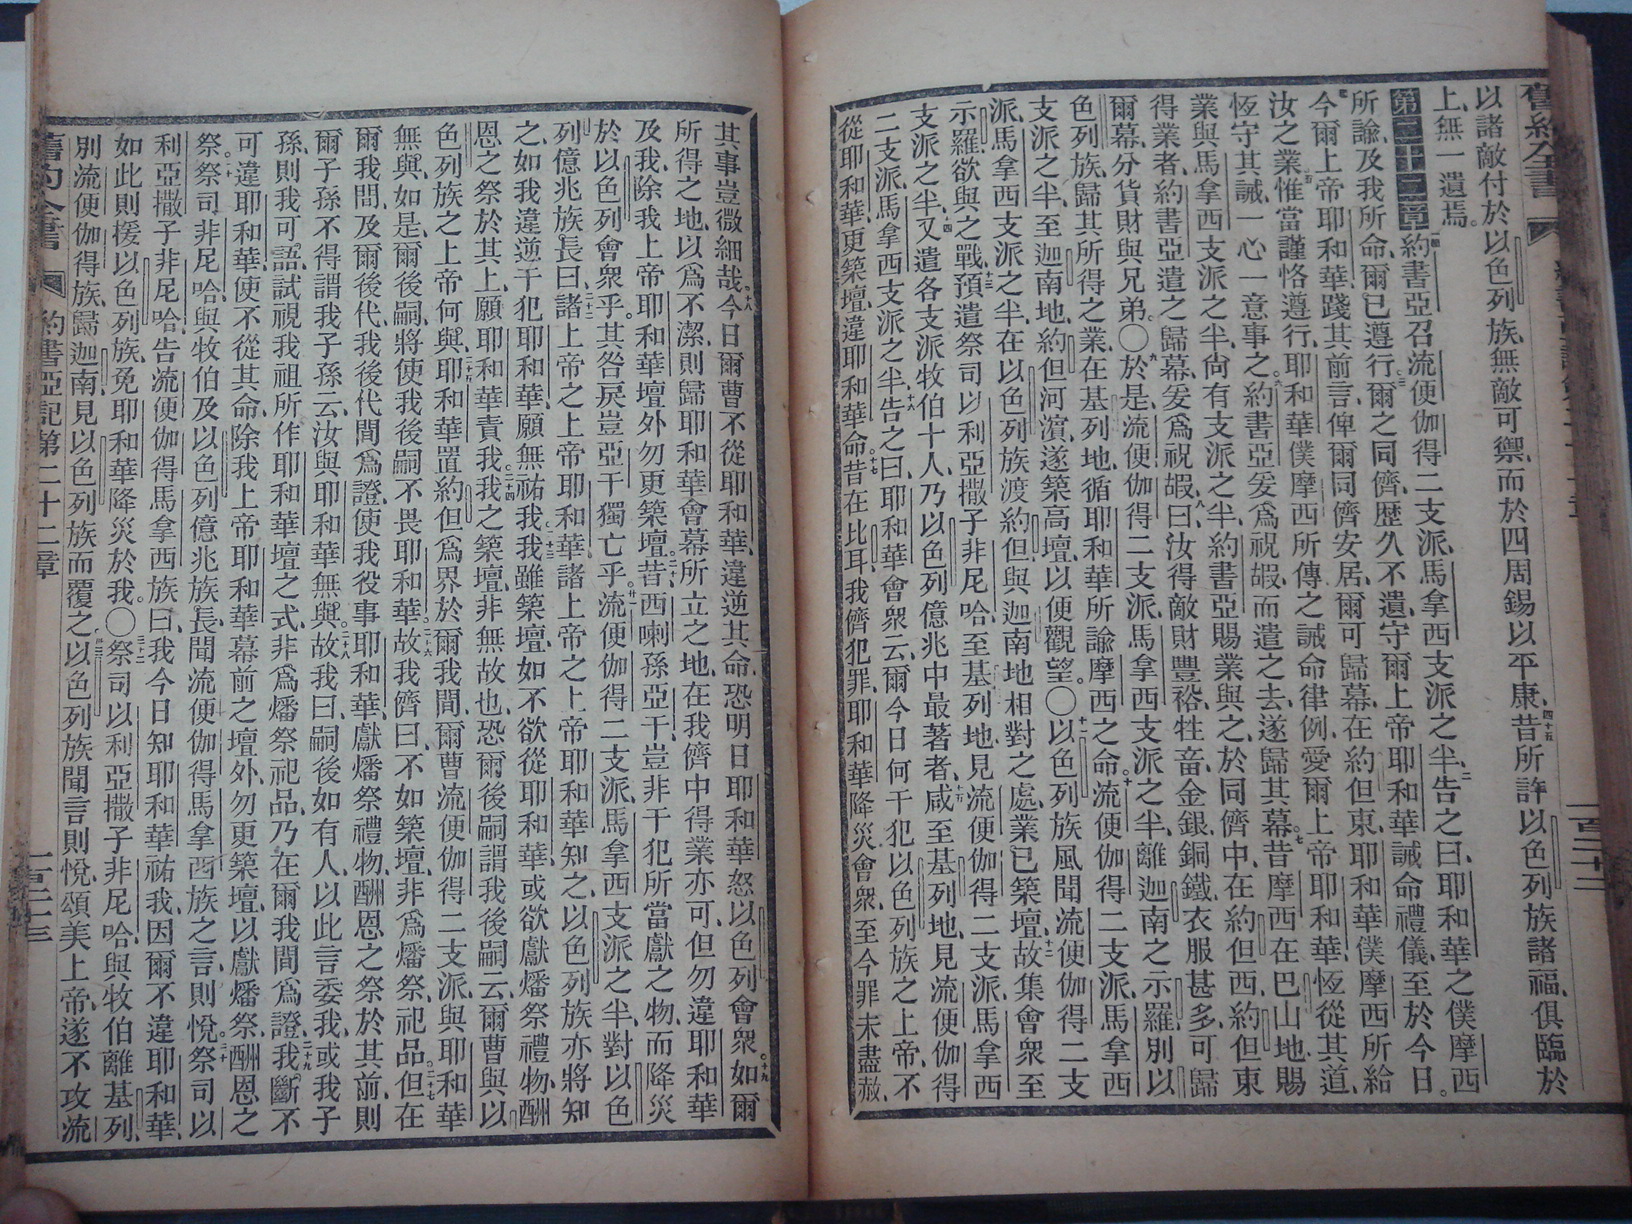 舊約全書
以諸敵付於以色列族、無敵可禦、而於四周錫以平康、四十五昔所許以色列族諸福、俱臨於
上、無一遺焉。
第二十二章 約書亞召流便伽得二支派、馬拿西支派之半、二告之曰、耶和華之僕摩西
所諭、及我所命、爾已遵行、三爾之同儕、歷久不遺、守爾上帝耶和華誡命禮儀、至於今日。
四今爾上帝耶和華踐其前言、俾爾同儕安居、爾可歸幕、在約但東、耶和華僕摩西所給
汝之業、五惟當謹恪遵行、耶和華僕摩西所傳之誡命律例、愛爾上帝耶和華、恆從其道、
恆守其誡、一心一意事之、六約書亞爰爲祝嘏、而遣之去、遂歸其幕。七昔摩西在巴山地賜
業與馬拿西支派之半、尚有支派之半、約書亞賜業與之、於同儕中、在約但西、約但東
得業者、約書亞遣之歸幕、爰爲祝嘏、八曰、汝得敵財豐裕、牲畜金銀銅鐵衣服甚多、可歸
爾幕、分貨財與兄弟。〇九於是流便伽得二支派、馬拿西支派之半、離迦南之示羅、別以
色列族、歸其所得之業、在基列地、循耶和華所諭摩西之命。十流便伽得二支派、馬拿西
支派之半、至迦南地、約但河濱、遂築高壇、以便觀望。〇十一以色列族風聞流便伽得二支
派、馬拿西支派之半、在以色列族渡約但、與迦南地相對之處、業已築壇、十二故集會衆至
示羅、欲與之戰、十三預遣祭司以利亞撒子非尼哈、至基列地、見流便伽得二支派、馬拿西
支派之半、十四又遣各支派牧伯十人、乃以色列億兆中最著者、咸至基列地、見流便伽得
二支派、馬拿西支派之半、十六告之曰、耶和華會衆云、爾今日何干犯以色列族之上帝、不
從耶和華、更築壇違耶和華命、十七昔在比耳、我儕犯罪、耶和華降災會衆、至今罪未盡赦、
其事豈微細哉、十八今日爾曹不從耶和華、違逆其命、恐明日耶和華怒以色列會衆。十九如爾
所得之地、以爲不潔、則歸耶和華會幕所立之地、在我儕中得業亦可、但勿違耶和華
及我、除我上帝耶和華壇外、勿更築壇、二十昔西喇孫亞干、豈非干犯所當獻之物、而降災
於以色列會衆乎。其咎戾豈亞干獨亡乎。廿一流便伽得二支派、馬拿西支派之半、對以色
列億兆族長曰、二十二諸上帝之上帝耶和華、諸上帝之上帝耶和華知之、以色列族亦將知
之、如我違逆干犯耶和華、願無祐我、二十三我雖築壇、如不欲從耶和華、或欲獻燔祭禮物、酬
恩之祭於其上、願耶和華責我、二十四我之築壇、非無故也、恐爾後嗣謂我後嗣云、爾曹與以
色列族之上帝何與、二十五耶和華置約但爲界於爾我間、爾曹流便伽得二支派、與耶和華
無與、如是、爾後嗣將使我後嗣不畏耶和華、二十六故我儕曰、不如築壇、非爲燔祭祀品、二十七但在
爾我間、及爾後代、我後代間爲證、使我役事耶和華、獻燔祭禮物、酬恩之祭於其前、則
爾子孫不得謂我子孫云、汝與耶和華無與。二十八故我曰、嗣後如有人以此言委我、或我子
孫、則我可語、試視我祖所作耶和華壇之式、非爲燔祭祀品、乃在爾我間爲證、二十九我斷不
可違耶和華、使不從其命、除我上帝耶和華幕前之壇外、勿更築壇、以獻燔祭、酬恩之
祭。三十祭司非尼哈、與牧伯及以色列億兆族長、聞流便伽得馬拿西族之言、則悅、三十一祭司以
利亞撒子非尼哈、告流便伽得馬拿西族曰、我今日知耶和華祐我、因爾不違耶和華、
如此則援以色列族、免耶和華降災於我。〇三十二祭司以利亞撒子非尼哈、與牧伯離基列、
別流便伽得族、歸迦南、見以色列族而覆之、三十三以色列族聞言則悅、頌美上帝、遂不攻流
舊約全書 約書亞記第二十二章 一百二十三